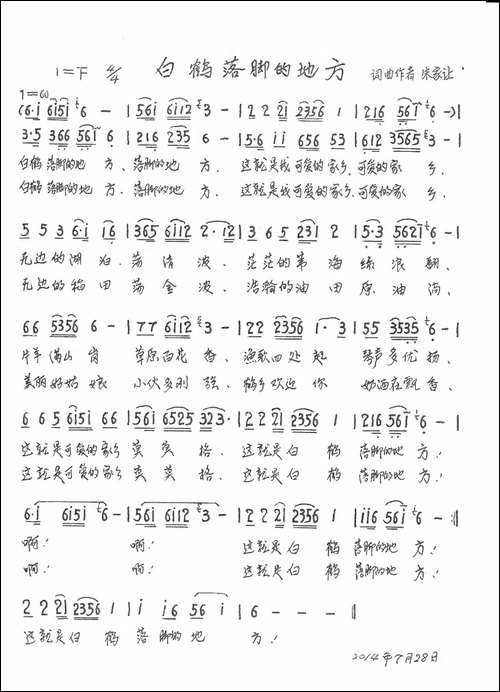 1=F 4/4 白鹤落脚的地方 词曲作者 朱家让
1=60
(6·i 6i5i 6 - | 56i 6i12 3 - | 2 2 21 2356 1 | 216 561 6 -)|
3·5 366 561 6 | 216 235 6 - | 5·6 i i 656 53 | 612 3565 3 - |
白鹤落脚的地方、落脚的地方、这就是我可爱的家乡、可爱的家乡、
白鹤落脚的地方、落脚的地方、这就是我可爱的家乡、可爱的家乡、
5 5 3 6·i i6 | 365 6i12 2·12 | 3 6 5 231 2 | 5·3 5621 6 - |
无边的湖泊、荡清波、茫茫的苇海绿浪翻、
无边的稻田荡金波、浩瀚的油田原油淌、
66 5356 6 - | 77 6i12 3 - | 22 2356 1·3 | 55 3535 6 - |
牛羊满山岗 草原百花香、渔歌四处起 琴声多优扬、
美丽好姑娘 小伙多刚强、鹤乡欢迎你 奶酒在飘香、
6 6 5 6i5i 66 | 56i 6525 323· | 22 21 2356 1 | 216 561 6 - |
这就是可爱的家乡 莫莫格、这就是白鹤落脚的地方!
这就是可爱的家乡 莫莫格、这就是白鹤落脚的地方!
6·i 6i5i 6 - | 56i 6i12 3 - | 2 2 21 2356 1 | ii6 56i 6 - :||
啊! 啊! 这就是白鹤落脚的地方!
啊! 啊! 这就是白鹤落脚的地方!
2 2 21 2356 1 | i i6 56 i | 6 - - - ||
这就是白鹤落脚的地方!
2014年7月28日